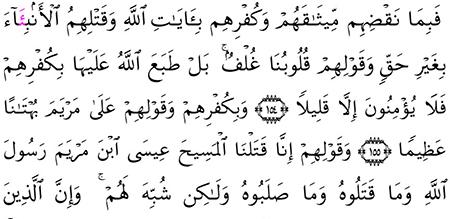 فَبِمَا نَقْضِهِم مِّيثَٰقَهُمْ وَكُفْرِهِم بِـَٔايَٰتِ ٱللَّهِ وَقَتْلِهِمُ ٱلْأَنۢبِيَآءَ
بِغَيْرِ حَقٍّ وَقَوْلِهِمْ قُلُوبُنَا غُلْفٌۢ ۚ بَلْ طَبَعَ ٱللَّهُ عَلَيْهَا بِكُفْرِهِمْ
فَلَا يُؤْمِنُونَ إِلَّا قَلِيلًا ﴿١٥٤﴾ وَبِكُفْرِهِمْ وَقَوْلِهِمْ عَلَىٰ مَرْيَمَ بُهْتَٰنًا
عَظِيمًا ﴿١٥٥﴾ وَقَوْلِهِمْ إِنَّا قَتَلْنَا ٱلْمَسِيحَ عِيسَى ٱبْنَ مَرْيَمَ رَسُولَ
ٱللَّهِ وَمَا قَتَلُوهُ وَمَا صَلَبُوهُ وَلَٰكِن شُبِّهَ لَهُمْ ۚ وَإِنَّ ٱلَّذِينَ